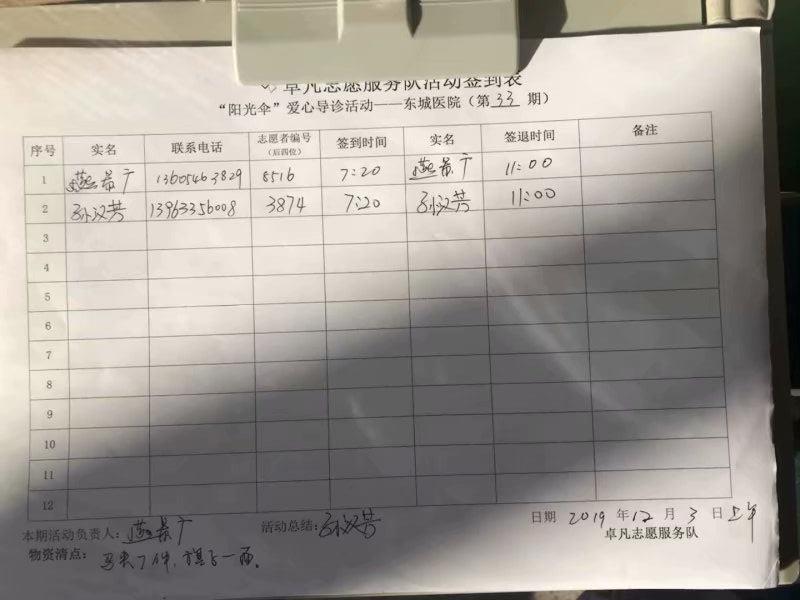 卓凡志愿服务队活动签到表
“阳光伞”爱心导诊活动——东城医院（第 33 期）
序号 实名 联系电话 志愿者编号（后四位） 签到时间 实名 签退时间 备注
1 燕景广 13605463829 8516 7:20 燕景广 11:00
2 孙汉芳 13963356008 3874 7:20 孙汉芳 11:00
3
4
5
6
7
8
9
10
11
12
本期活动负责人：燕景广 活动总结：孙汉芳 日期 2019 年 12 月 3 日 上午
物资清点： 马夹7件，旗子一面。 卓凡志愿服务队